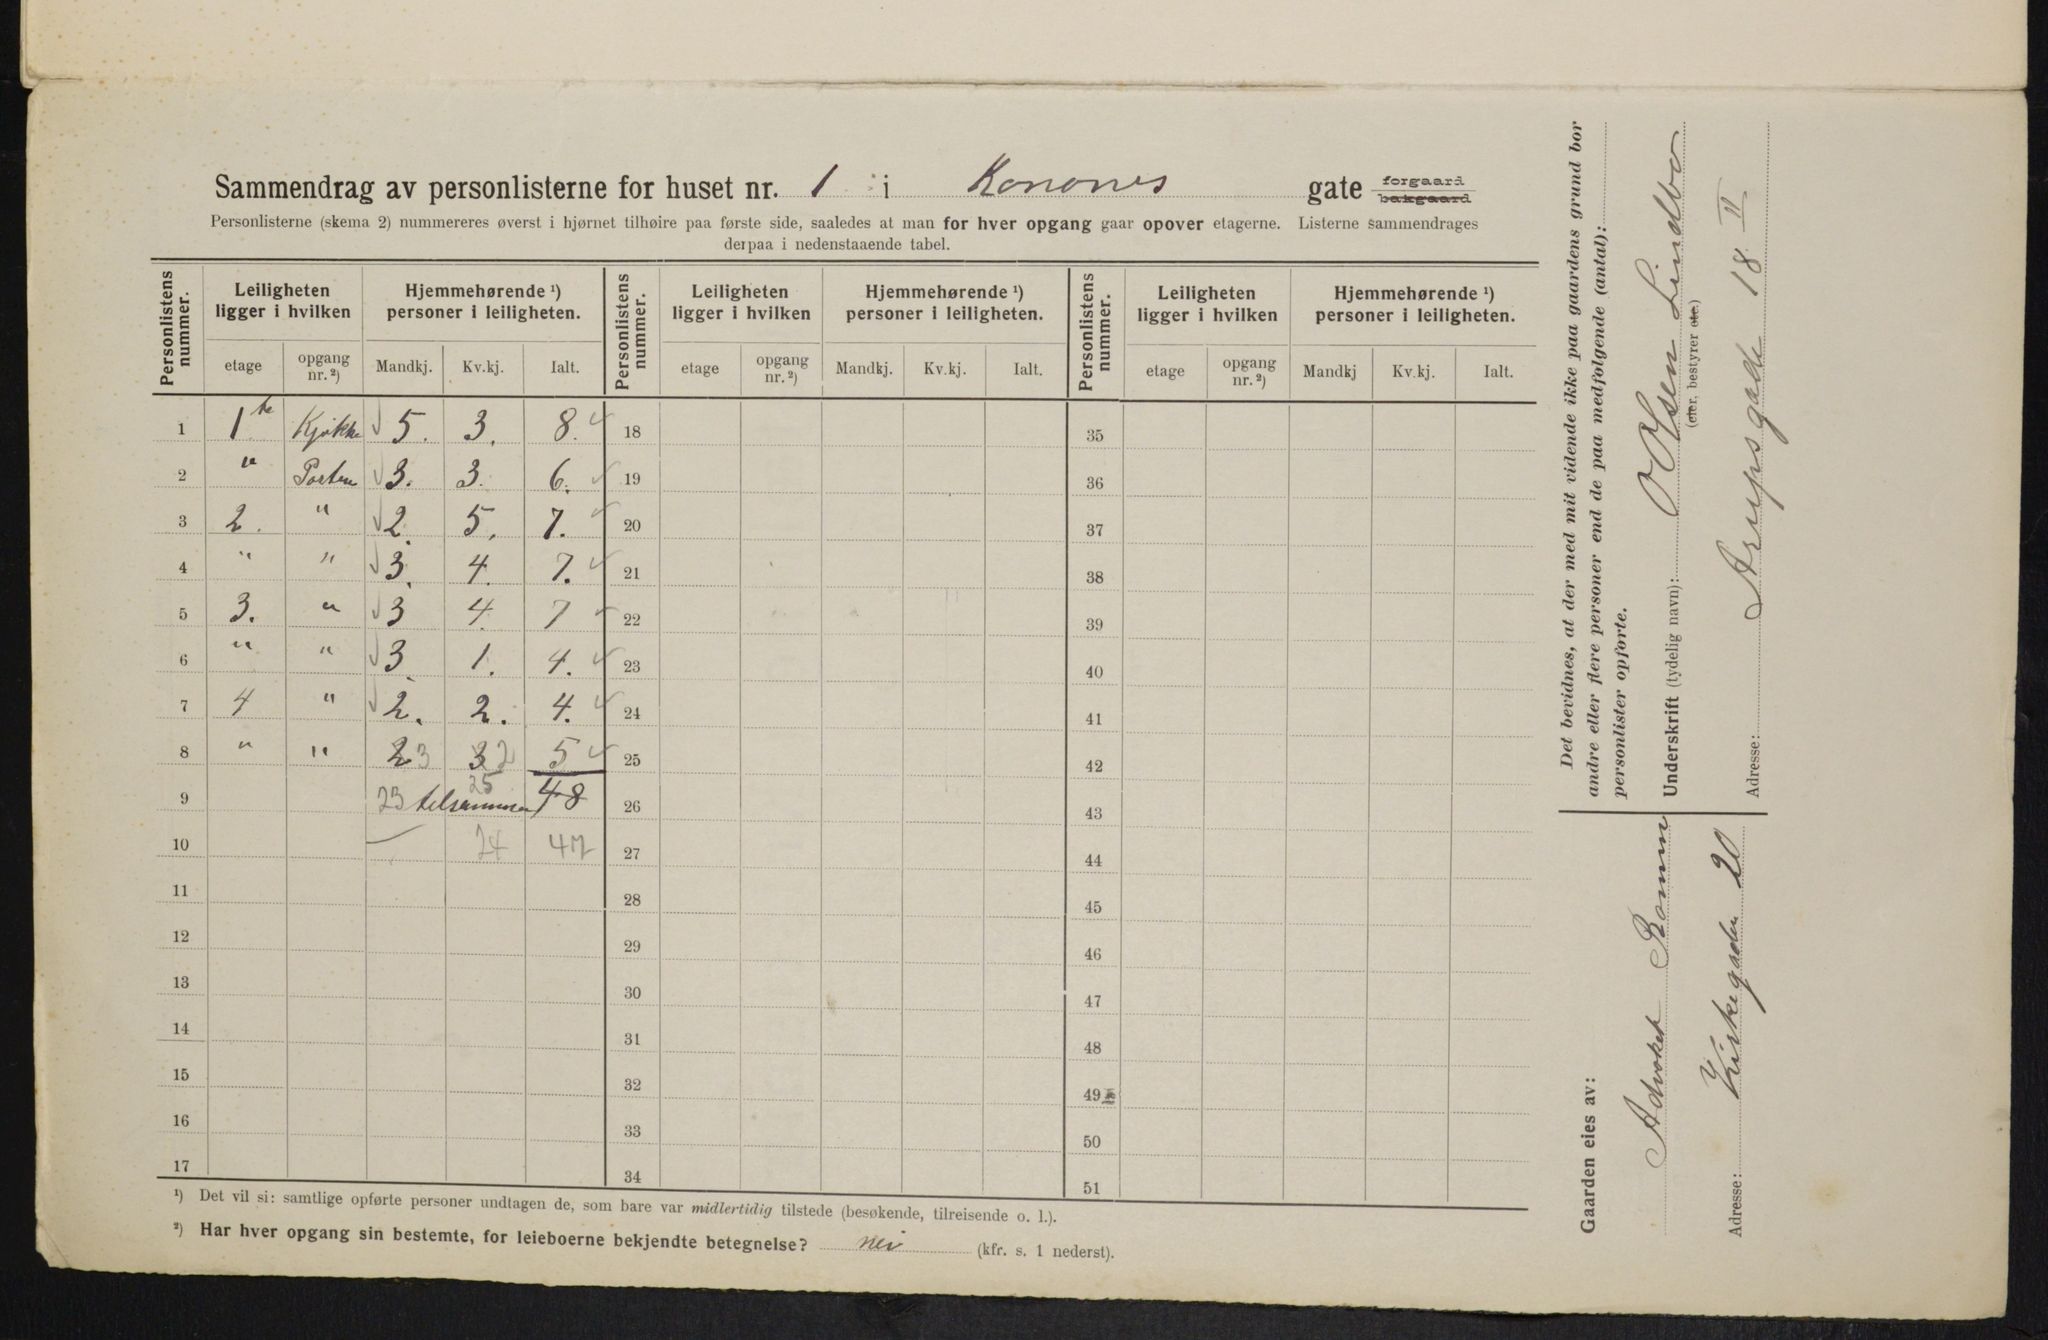 Sammendrag av personlisterne for huset nr. 1 i Konows gate forgaard bakgaard
Personlisterne (skema 2) nummereres øverst i hjørnet tilhøire paa første side, saaledes at man for hver opgang gaar opover etagerne. Listerne sammendrages
derpaa i nedenstaaende tabel.
Personlistens nummer. Leiligheten ligger i hvilken Hjemmehørende ¹) personer i leiligheten. Personlistens nummer. Leiligheten ligger i hvilken Hjemmehørende ¹) personer i leiligheten. Personlistens nummer. Leiligheten ligger i hvilken Hjemmehørende ¹) personer i leiligheten.
etage opgang nr. ²) Mandkj. Kv.kj. Ialt. etage opgang nr. ²) Mandkj. Kv.kj. Ialt. etage opgang nr. ²) Mandkj Kv.kj. Ialt.
1 1te Kjøkke 5. 3. 8. 18 35
2 " Porten 3. 3. 6. 19 36
3 2. " 2. 5. 7. 20 37
4 " " 3. 4. 7. 21 38
5 3. " 3 4. 7 22 39
6 " " 3. 1. 4. 23 40
7 4 " 2. 2. 4. 24 41
8 " " 2 3 3 2 5 25 42
9 23 tilsammen 25 48 26 43
10 24 47 27 44
11 28 45
12 29 46
13 30 47
14 31 48
15 32 49
16 33 50
17 34 51
¹) Det vil si: samtlige opførte personer undtagen de, som bare var midlertidig tilstede (besøkende, tilreisende o. l.).
²) Har hver opgang sin bestemte, for leieboerne bekjendte betegnelse? nei (kfr. s. 1 nederst).
Det bevidnes, at der med mit vidende ikke paa gaardens grund bor
andre eller flere personer end de paa medfølgende (antal):
personlister opførte.
Underskrift (tydelig navn): O Olsen Lindbo
(eier, bestyrer etc.)
Adresse: Arupsgade 18 II
Gaarden eies av:
Advokat
Adresse: Kirkegaden 20